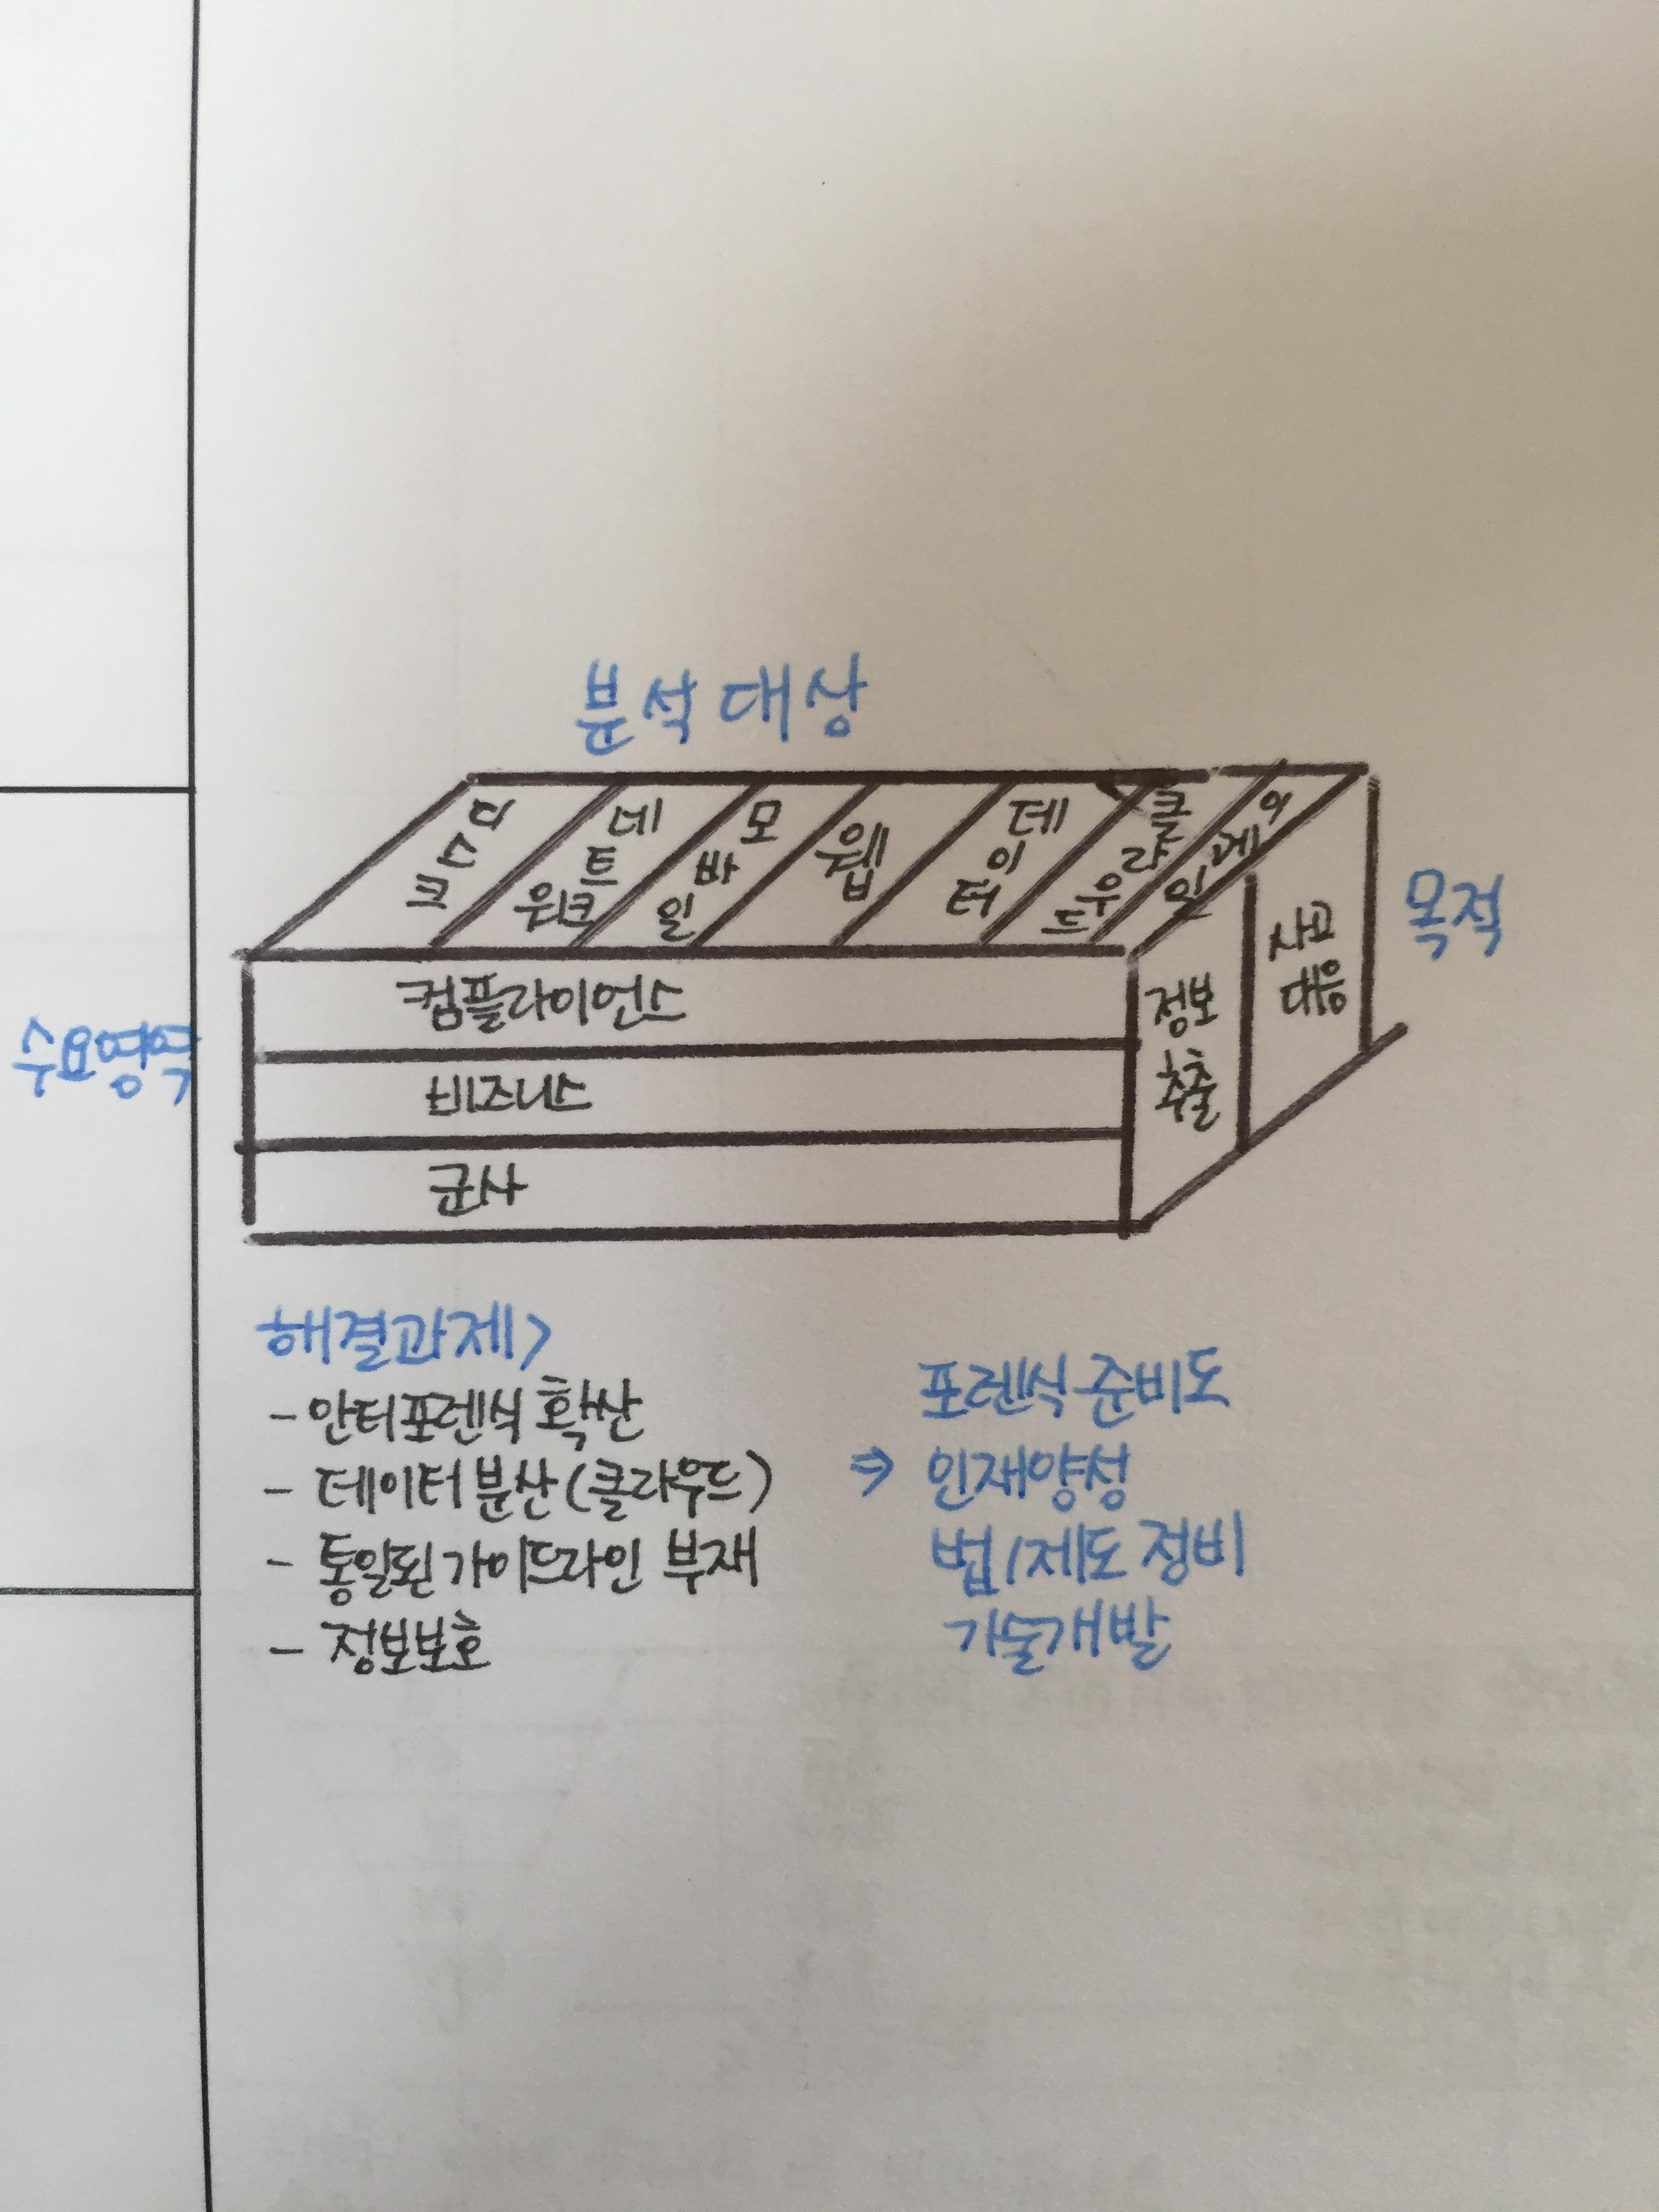 분석 대상
디스크
네트워크
모바일
웹
데이터
클라우드
이메일
목적
수요영역
컴플라이언스
비즈니스
군사
정보
추출
사고
대응
해결과제>
- 안티포렌식 확산
- 데이터 분산(클라우드)
- 통일된 가이드라인 부재
- 정보보호
포렌식 준비도
⇒ 인재양성
법/제도 정비
기술개발